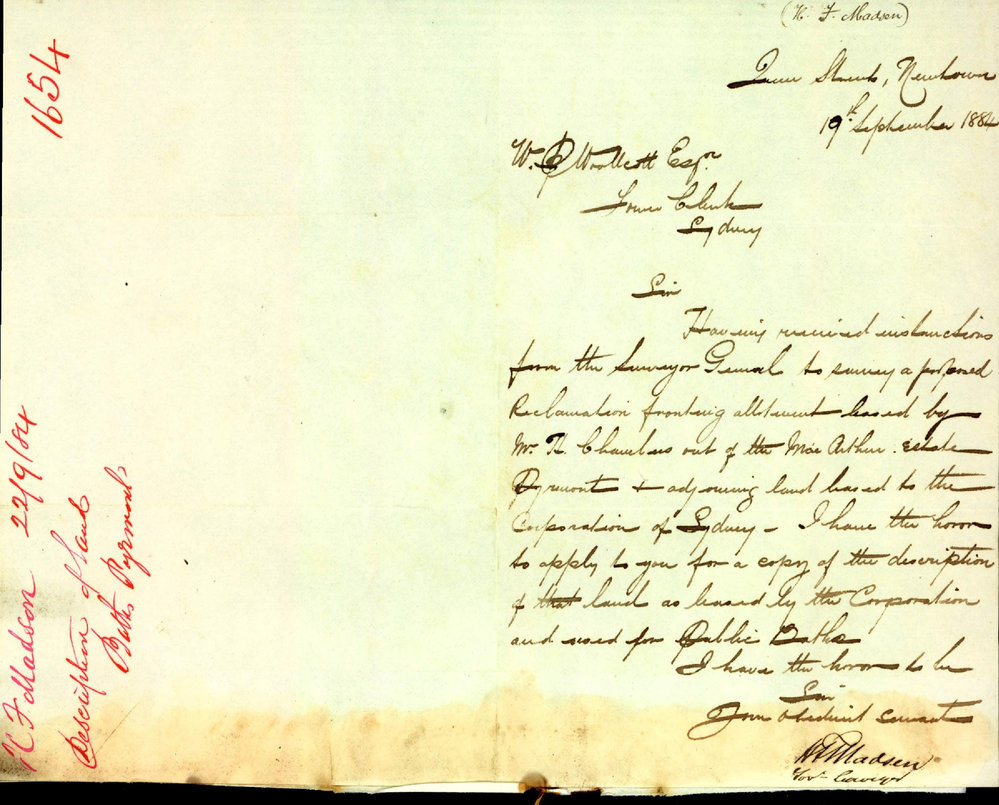 (H. F. Madsen)
Queen Street, Newtown
19th September 1884
W. P. Woolcott Esqr
Town Clerk
Sydney
Sir
Having received instructions
from the Surveyor General to survey a proposed
Reclamation fronting allotment leased by
Mr. H. Chambers out of the MacArthur Estate
Pyrmont & adjoining land leased to the
Corporation of Sydney - I have the honor
to apply to you for a copy of the description
of that land as leased by the Corporation
and used for Public Baths
I have the honor to be
Sir
Your obedient servant
H F Madsen
Govt Surveyor
1654
H. F Madson 22/9/84
Description of land
Baths Pyrmont